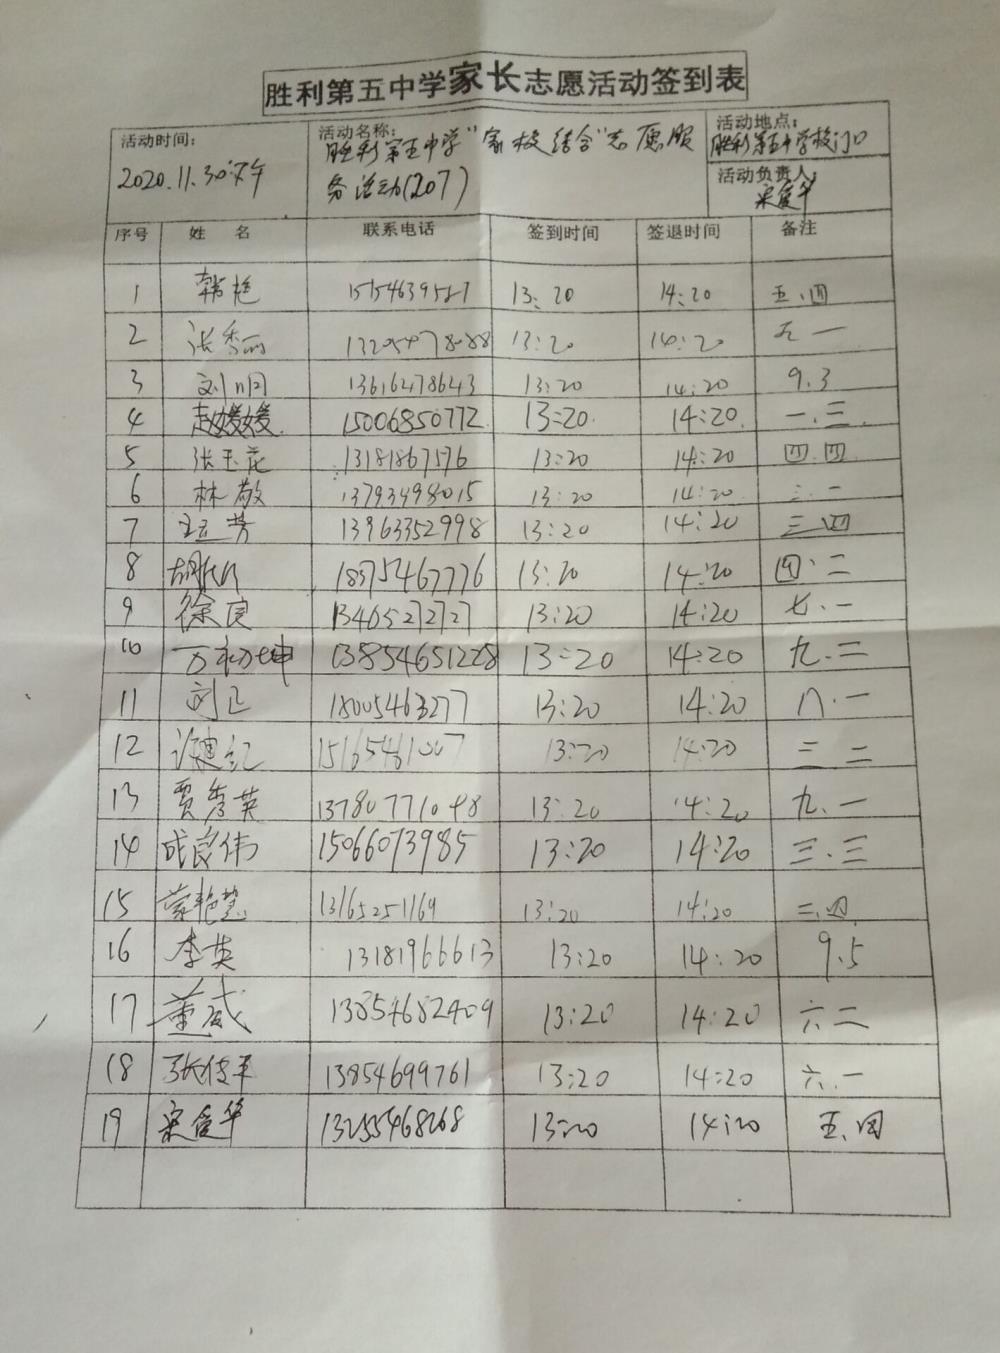 胜利第五中学家长志愿活动签到表
活动时间： 活动名称： 活动地点：
胜利第五中学"家校结合"志愿服 胜利第五中学校门口
2020.11.30 务活动(207) 活动负责人：
宋爱华
序号 姓 名 联系电话 签到时间 签退时间 备注
1 韩艳 15154639527 13:20 14:20 五.四
2 张秀丽 13205478088 13:20 14:20 五一
3 刘明 13616478643 13:20 14:20 9.3
4 赵媛媛 15006850772 13:20 14:20 一.三
5 张玉花 13181867576 13:20 14:20 四.四
6 林敬 13793498015 13:20 14:20 三.一
7 芳 13963352998 13:20 14:20 三.四
8 18975467776 13:20 14:20 四.二
9 徐良 13465272727 13:20 14:20 七.一
10 坤 13854651228 13:20 14:20 九.二
11 刘 18005463277 13:20 14:20 八.一
12 红 13:20 14:20 三 二
13 贾秀英 13780771098 13:20 14:20 九.一
14 成良伟 15066073985 13:20 14:20 三.三
15 艳慧 13165251169 13:20 14:20 三.四
16 李英 13181966613 13:20 14:20 9.5
17 董威 13854682409 13:20 14:20 六二
18 张俊平 13854699761 13:20 14:20 六.一
19 宋爱华 13255468268 13:20 14:20 五.四